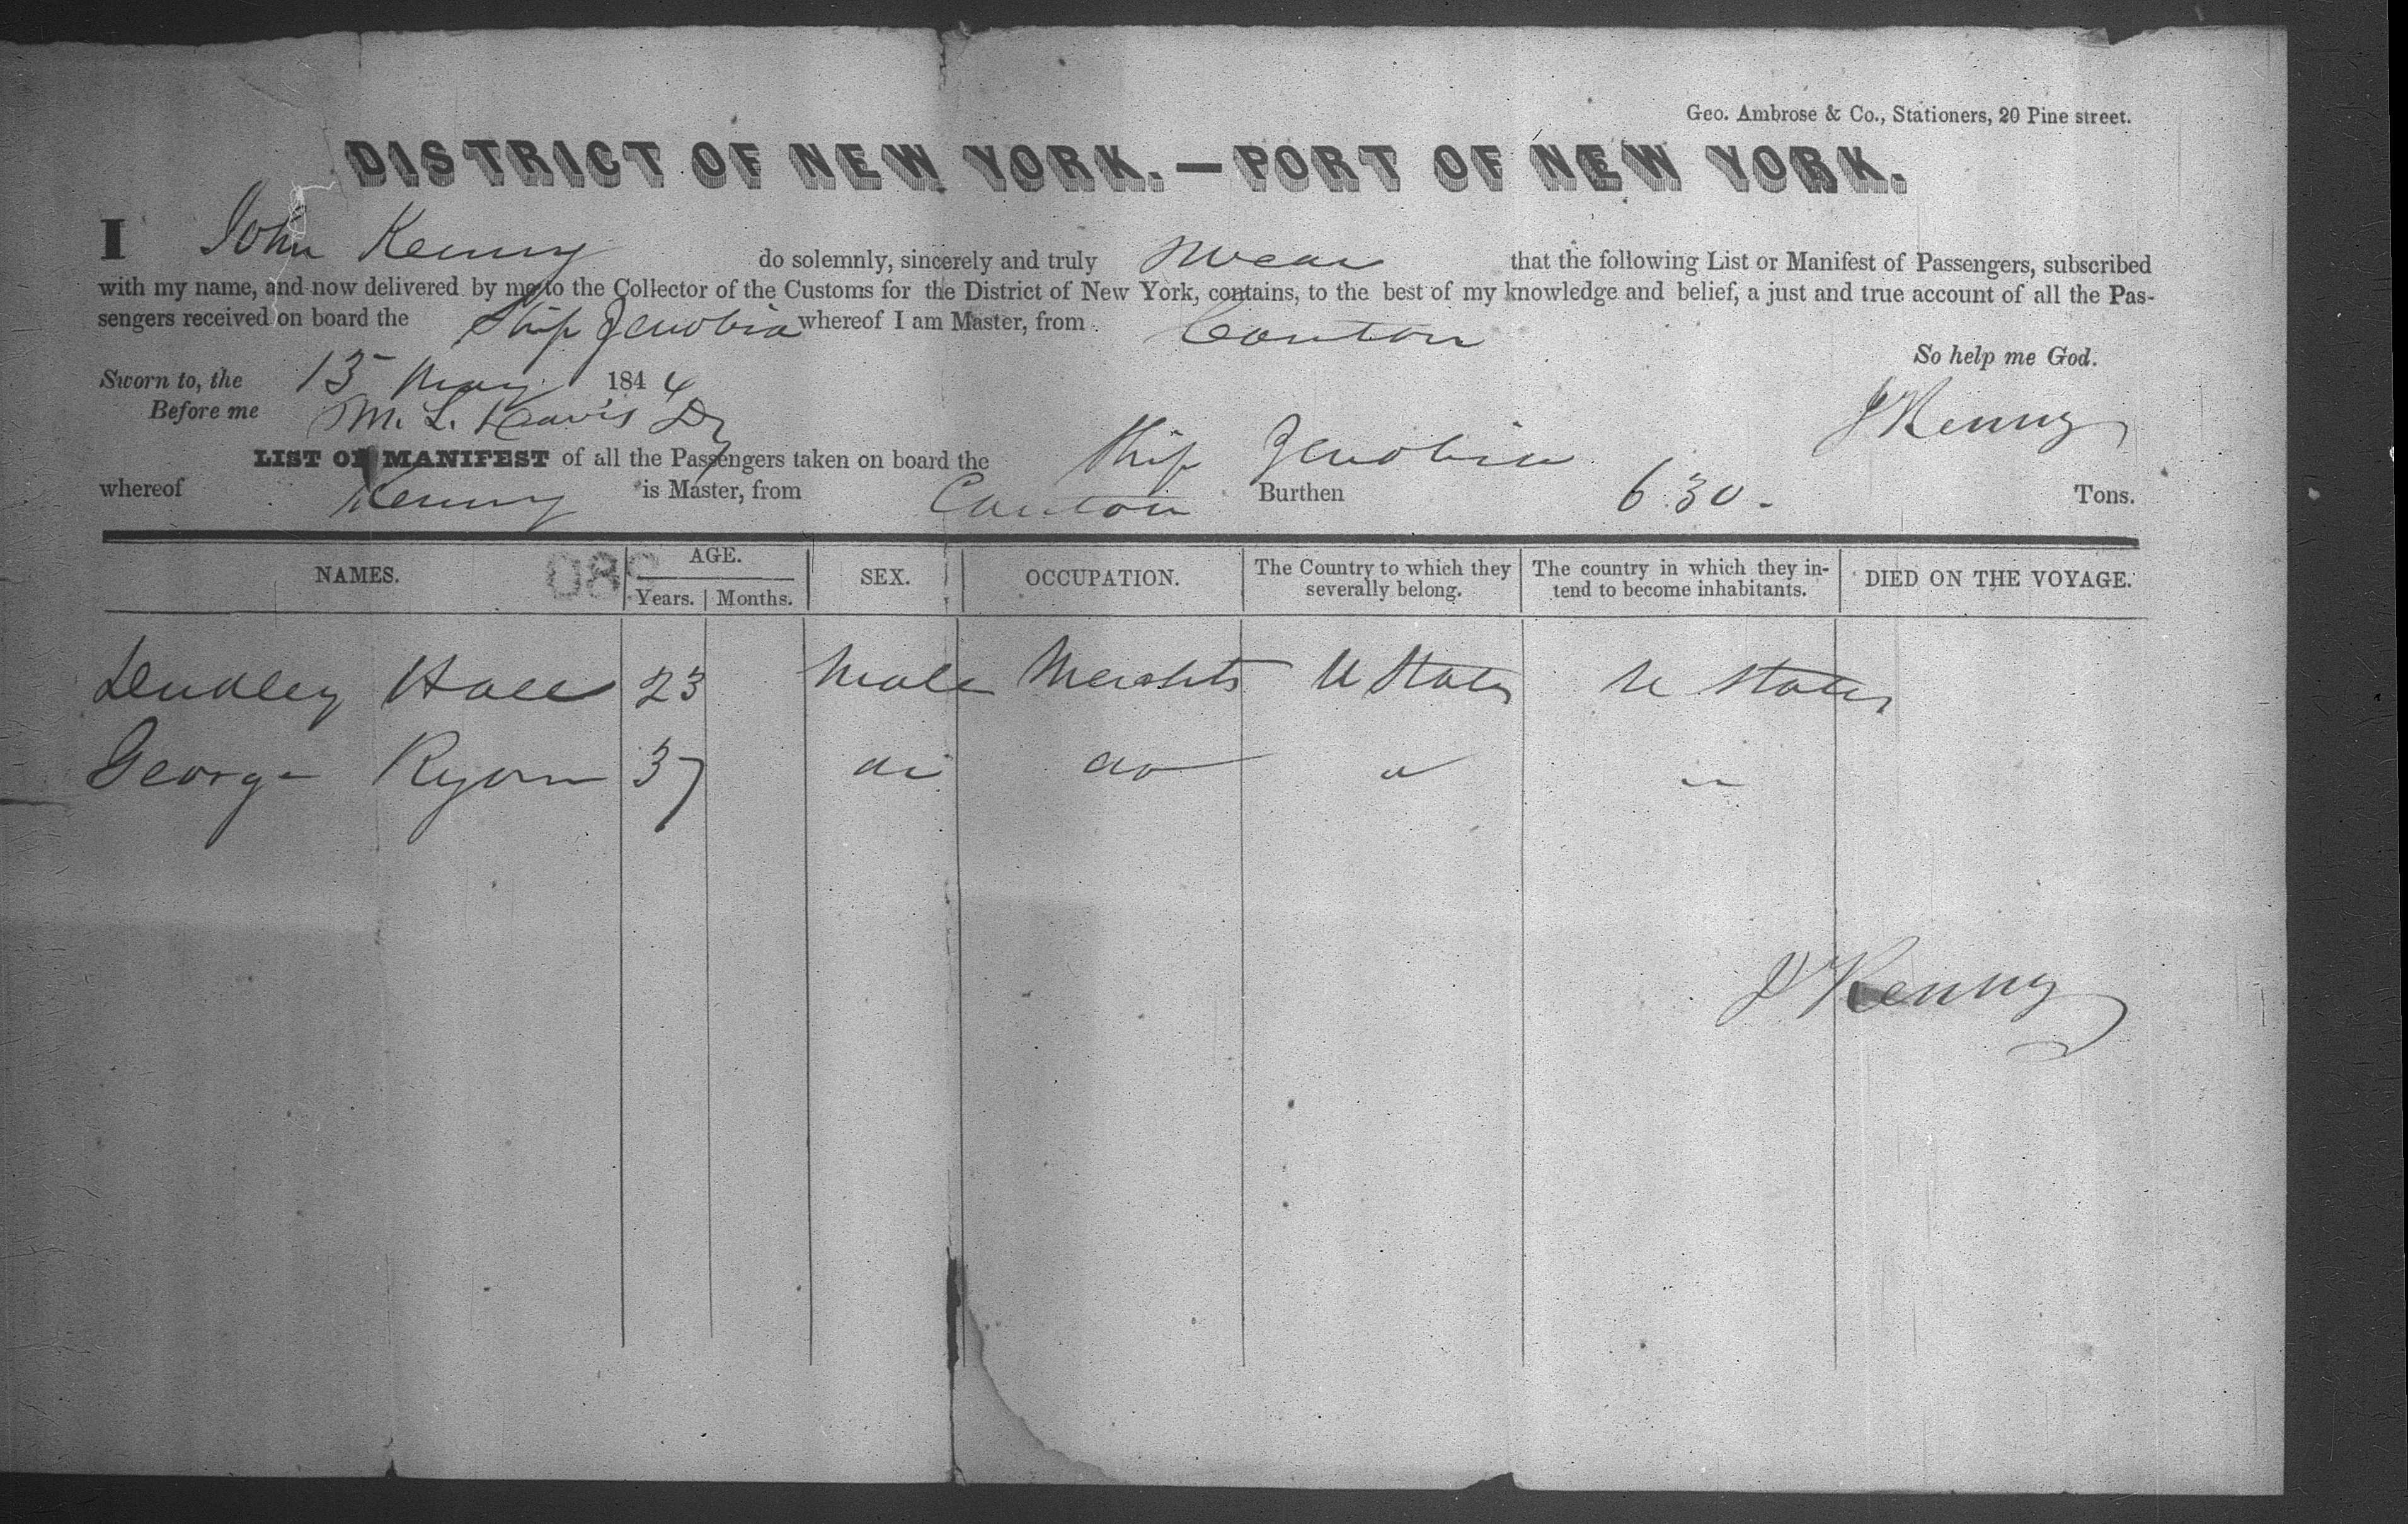 Geo. Ambrose & Co., Stationers, 20 Pine street.
DISTRICT OF NEW YORK.—PORT OF NEW YORK.
I John Kenny do solemnly, sincerely and truly swear that the following List or Manifest of Passengers, subscribed
with my name, and now delivered by me to the Collector of the Customs for the District of New York, contains, to the best of my knowledge and belief, a just and true account of all the Pas-
sengers received on board the Ship Zenobia whereof I am Master, from Canton
So help me God.
Sworn to, the 13 May 1844
J Kenny
Before me M. L. Davis Dy
LIST OR MANIFEST of all the Passengers taken on board the Ship Zenobia
whereof Kenny is Master, from Canton Burthen 630 - Tons.
NAMES. AGE. SEX. OCCUPATION. The Country to which they severally belong. The country in which they in-tend to become inhabitants. DIED ON THE VOYAGE.
Years. Months.
Dudley Hall 23 Male U States U States
George Ryan 37 do do
J Kenny